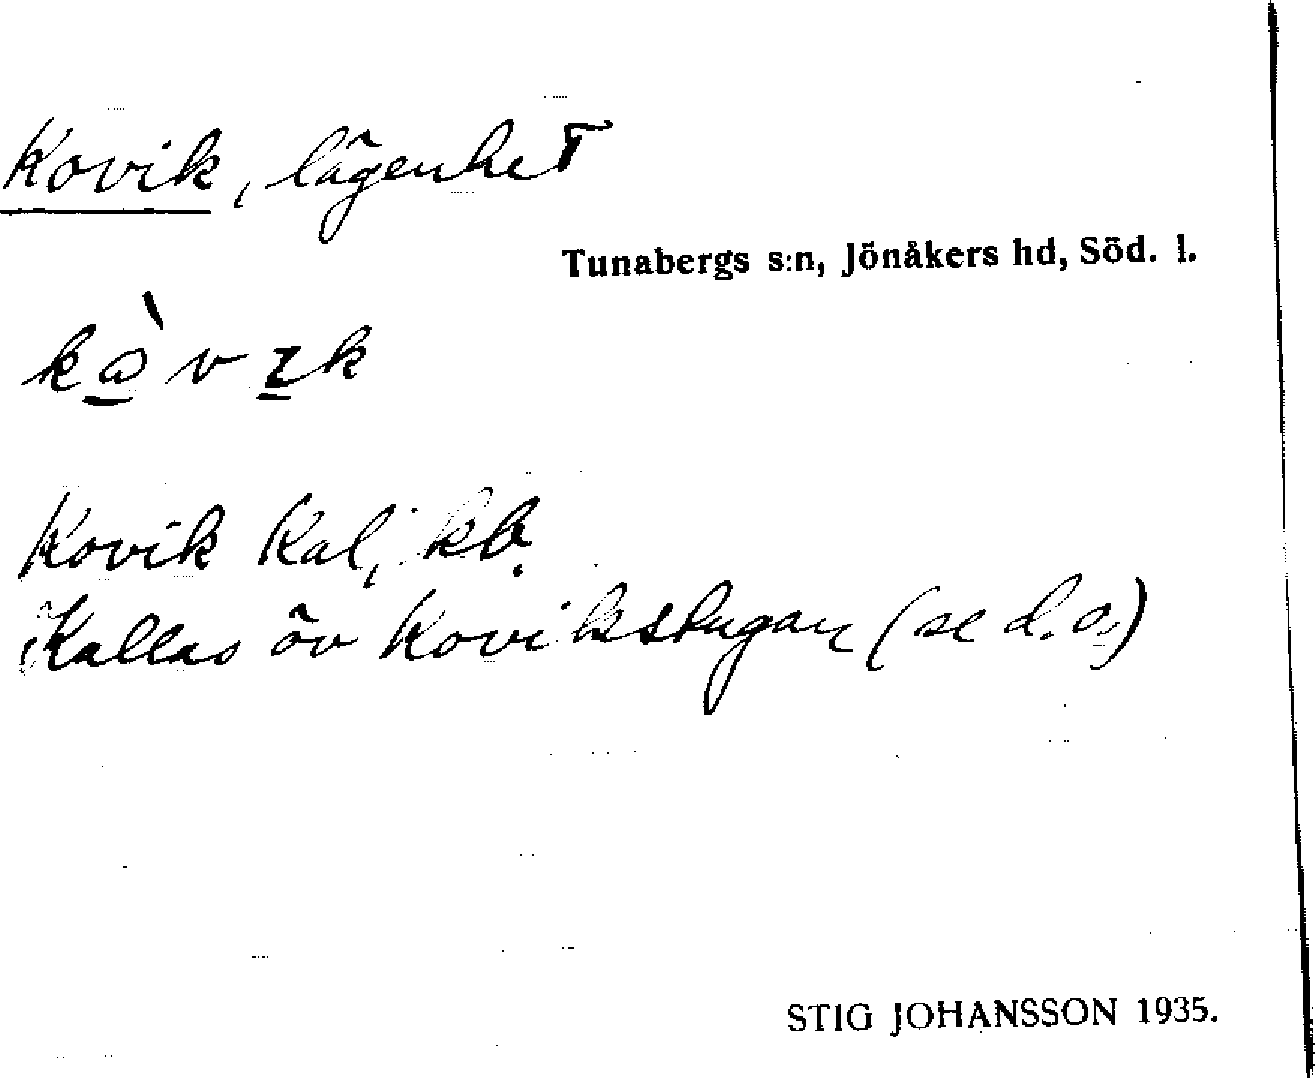 Kovik, lägenhet
Tunabergs s:n, Jönåkers hd, Söd. l.
Kovik Kal, kb.
Kallas äv Kovikstugan (se d.o.)
STIG JOHANSSON 1935.